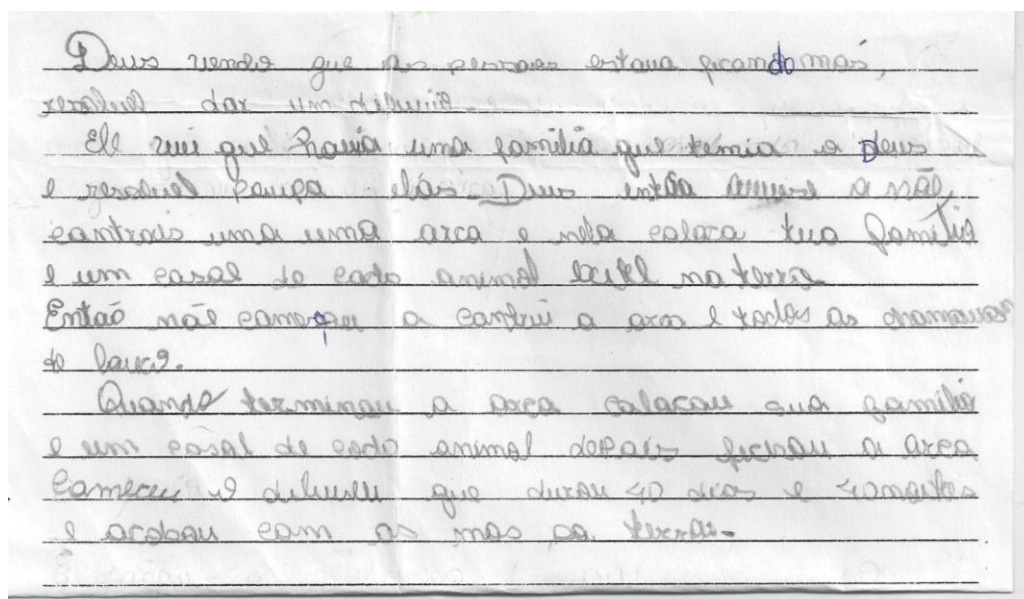 Deus vendo que as pessoas estava ficando mas,
resolvel dar um diluvio.
Ele viu que havia uma familia que temia a Deus
e resolvel poupa elas Deus então a não
controis uma uma arca e nela coloca tua familia
e um casal de cado animal na terra
Então não começou a contrui a arca e todos os chamavas
de louco.
Quando terminou a arca colocou sua familia
e um casal de cado animal depois fechou a arca
começou o diluvio que durou 40 dias e 40 noites
e acabou com os mas da terra.